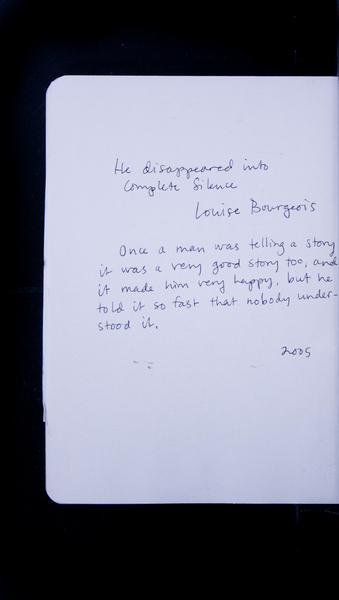 He disappeared into
Complete Silence
Louise Bourgeois
Once a man was telling a story
it was a very good story too, and
it made him very happy, but he
told it so fast that nobody under-
stood it.
2005